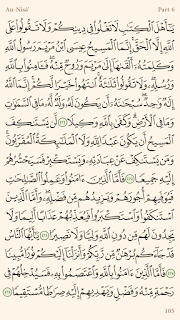 An-Nisāʾ Part 6
يَٰٓأَهْلَ ٱلْكِتَٰبِ لَا تَغْلُوا۟ فِى دِينِكُمْ وَلَا تَقُولُوا۟ عَلَى
ٱللَّهِ إِلَّا ٱلْحَقَّ إِنَّمَا ٱلْمَسِيحُ عِيسَى ٱبْنُ مَرْيَمَ رَسُولُ ٱللَّهِ
وَكَلِمَتُهُۥٓ أَلْقَىٰهَآ إِلَىٰ مَرْيَمَ وَرُوحٌ مِّنْهُ فَـَٔامِنُوا۟ بِٱللَّهِ
وَرُسُلِهِۦ وَلَا تَقُولُوا۟ ثَلَٰثَةٌ ٱنتَهُوا۟ خَيْرًا لَّكُمْ إِنَّمَا ٱللَّهُ
إِلَٰهٌ وَٰحِدٌ سُبْحَٰنَهُۥٓ أَن يَكُونَ لَهُۥ وَلَدٌ لَّهُۥ مَا فِى ٱلسَّمَٰوَٰتِ
وَمَا فِى ٱلْأَرْضِ وَكَفَىٰ بِٱللَّهِ وَكِيلًا ١٧١ لَّن يَسْتَنكِفَ
ٱلْمَسِيحُ أَن يَكُونَ عَبْدًا لِّلَّهِ وَلَا ٱلْمَلَٰٓئِكَةُ ٱلْمُقَرَّبُونَ
وَمَن يَسْتَنكِفْ عَنْ عِبَادَتِهِۦ وَيَسْتَكْبِرْ فَسَيَحْشُرُهُمْ
إِلَيْهِ جَمِيعًا ١٧٢ فَأَمَّا ٱلَّذِينَ ءَامَنُوا۟ وَعَمِلُوا۟ ٱلصَّٰلِحَٰتِ
فَيُوَفِّيهِمْ أُجُورَهُمْ وَيَزِيدُهُم مِّن فَضْلِهِۦ وَأَمَّا ٱلَّذِينَ
ٱسْتَنكَفُوا۟ وَٱسْتَكْبَرُوا۟ فَيُعَذِّبُهُمْ عَذَابًا أَلِيمًا وَلَا
يَجِدُونَ لَهُم مِّن دُونِ ٱللَّهِ وَلِيًّا وَلَا نَصِيرًا ١٧٣ يَٰٓأَيُّهَا ٱلنَّاسُ
قَدْ جَآءَكُم بُرْهَٰنٌ مِّن رَّبِّكُمْ وَأَنزَلْنَآ إِلَيْكُمْ نُورًا مُّبِينًا
١٧٤ فَأَمَّا ٱلَّذِينَ ءَامَنُوا۟ بِٱللَّهِ وَٱعْتَصَمُوا۟ بِهِۦ فَسَيُدْخِلُهُمْ فِى
رَحْمَةٍ مِّنْهُ وَفَضْلٍ وَيَهْدِيهِمْ إِلَيْهِ صِرَٰطًا مُّسْتَقِيمًا ١٧٥
105